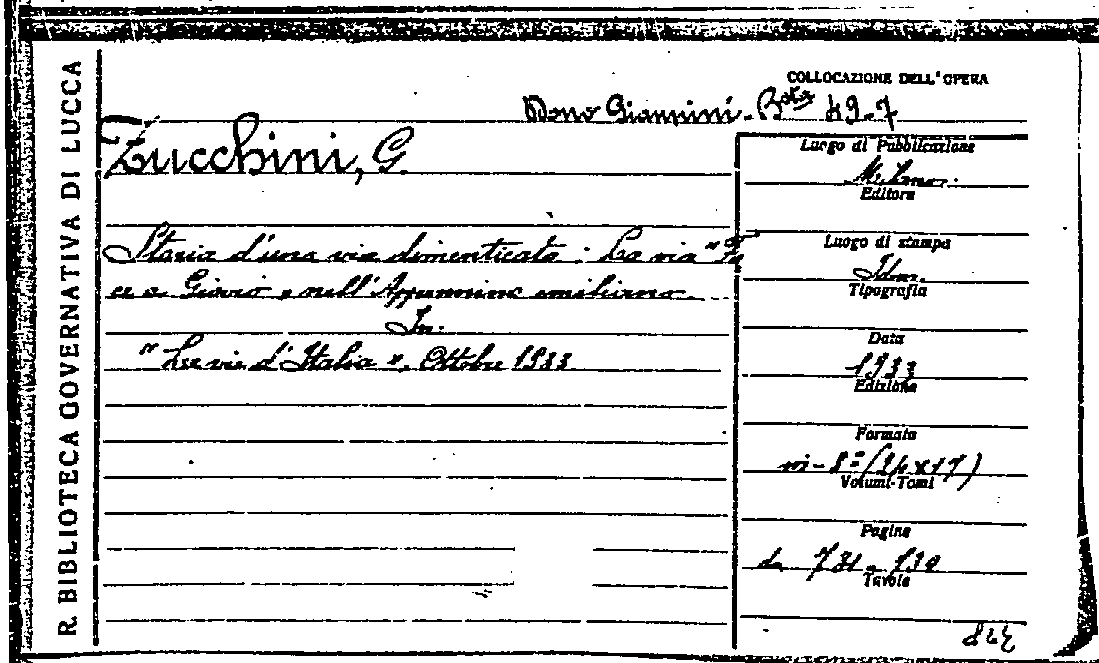 R. BIBLIOTECA GOVERNATIVA DI LUCCA
COLLOCAZIONE DELL'OPERA
Dono Giannini - B.ta 49-7
Zucchini, G.
Storia d'una via dimenticata: La via "Fa
ce a Giovo", nell'Appennino emiliano.
In:
"Le vie d'Italia", Ottobre 1933
Luogo di Pubblicazione
Milano.
Editore
Luogo di stampa
Idem.
Tipografia
Data
1933
Edizione
Formato
in-8° (24x17)
Volumi-Tomi
Pagine
da 731 a
Tavole